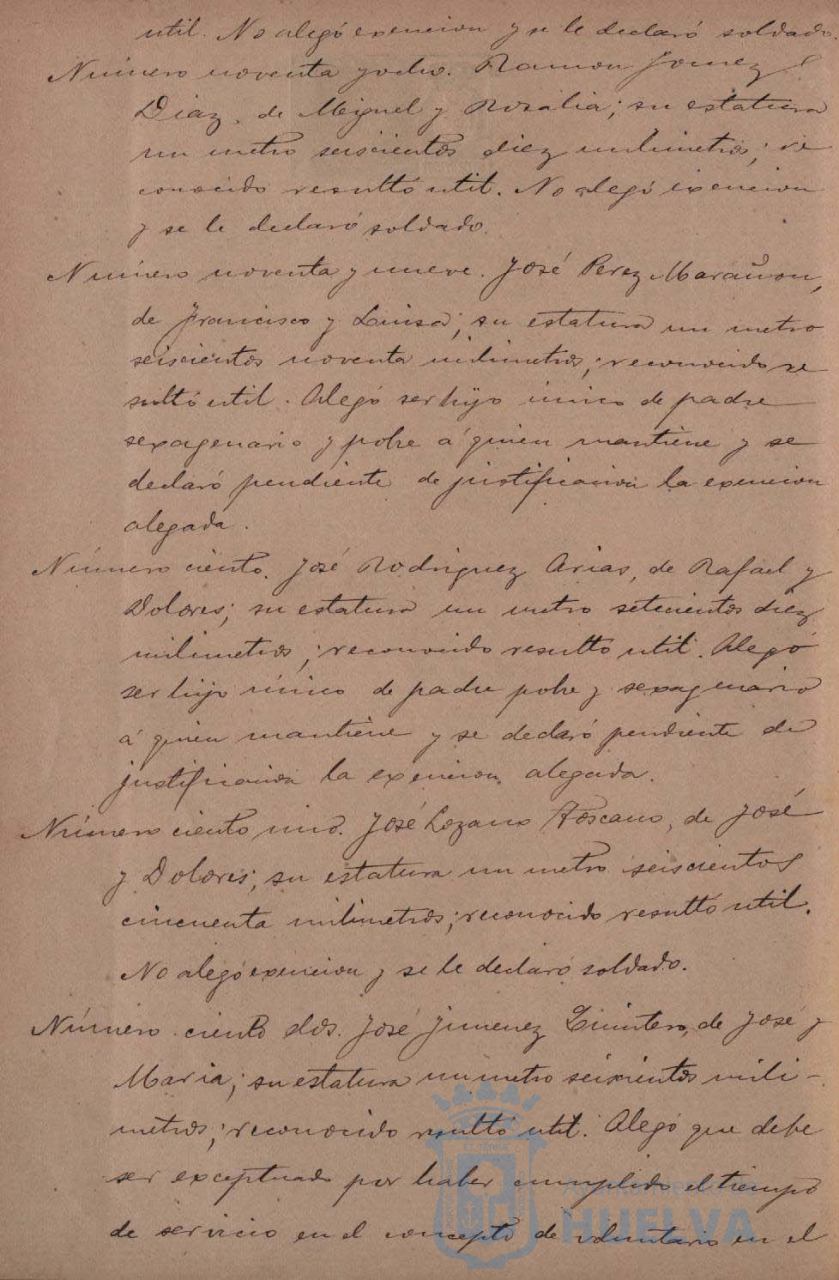 util. No alegó exencion y se le declaró soldado.
Número noventa y ocho. Ramon Gomez
Diaz, de Miguel y Rosalia; su estatura
un metro seiscientos diez milimetros; re
conocido resultó util. No alegó exencion
y se le declaró soldado.
Número noventa y nueve. José Perez Marañon,
de Francisco y Luisa; su estatura un metro
seiscientos noventa milimetros; reconocido re
sultó util. Alegó ser hijo único de padre
sexagenario y pobre á quien mantiene y se
declaró pendiente de justificacion la exencion
alegada.
Número ciento. José Rodriguez Arias, de Rafael y
Dolores; su estatura un metro setecientos diez
milimetros; reconocido resultó util. Alegó
ser hijo único de padre pobre y sexagenario
á quien mantiene y se declaró pendiente de
justificacion la exencion alegada.
Número ciento uno. José Lozano Toscano, de José
y Dolores; su estatura un metro seiscientos
cincuenta milimetros; reconocido resultó util.
No alegó exencion y se le declaró soldado.
Número ciento dos. José Jimenez Quintero, de José y
Maria; su estatura un metro seiscientos mili-
metros; reconocido resultó util. Alegó que debe
ser exceptuado por haber cumplido el tiempo
de servicio en el concepto de voluntario en el
HUELVA